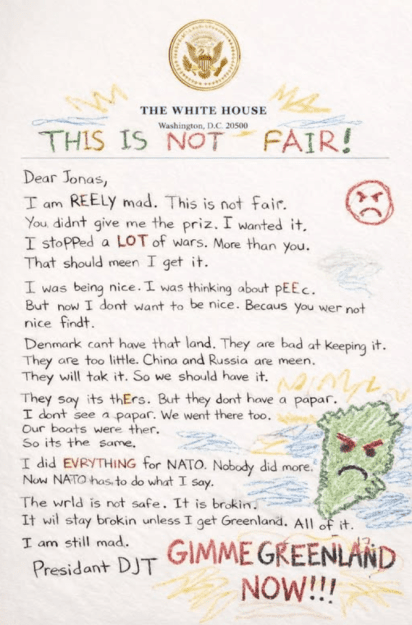 THE WHITE HOUSE
Washington, D.C. 20500
THIS IS NOT FAIR!
Dear Jonas,
I am REELY mad. This is not fair.
You didnt give me the priz. I wanted it.
I stoPPed a LOT of wars. More than you.
That should meen I get it.
I was being nice. I was thinking about pEEc.
But now I dont want to be nice. Becaus you wer not
nice findt.
Denmark cant have that land. They are bad at keeping it.
They are too little. China and Russia are meen.
They will tak it. So we should have it.
They say its thErs. But they dont have a papar.
I dont see a papar. We went there too.
Our boats were ther.
So its the same.
I did EVRYTHING for NATO. Nobody did more.
Now NATO has to do what I say.
The wrld is not safe. It is brokin.
It wil stay brokin unless I get Greenland. All of it.
I am still mad.
Presidant DJT
GIMME GREENLAND
NOW!!!